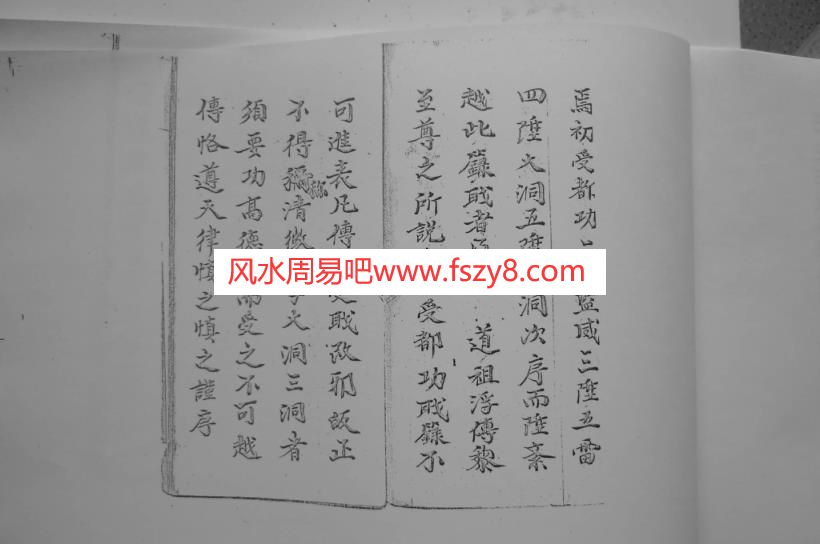 焉初受都功 盟威三陞五雷
四陞大洞五陞 洞次序而陞紊
越此籙戝者 道祖浮傳黎
至尊之所説 受都功戝籙不
可進表凡傳 戝改邪皈正
不得稱清微 大洞三洞者
称
須要功高德 而受之不可越
傳恪遵天律慎之慎之謹序
风水周易吧www.fszy8.com